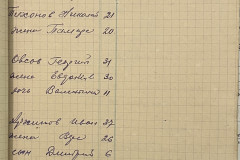 Тихонов Николай 21
жена Пелагея 20
Овсов Георгий 31
жена Евдокия 30
дочь Валентина 11
Иван 27
жена 26
сын Дмитрий 6